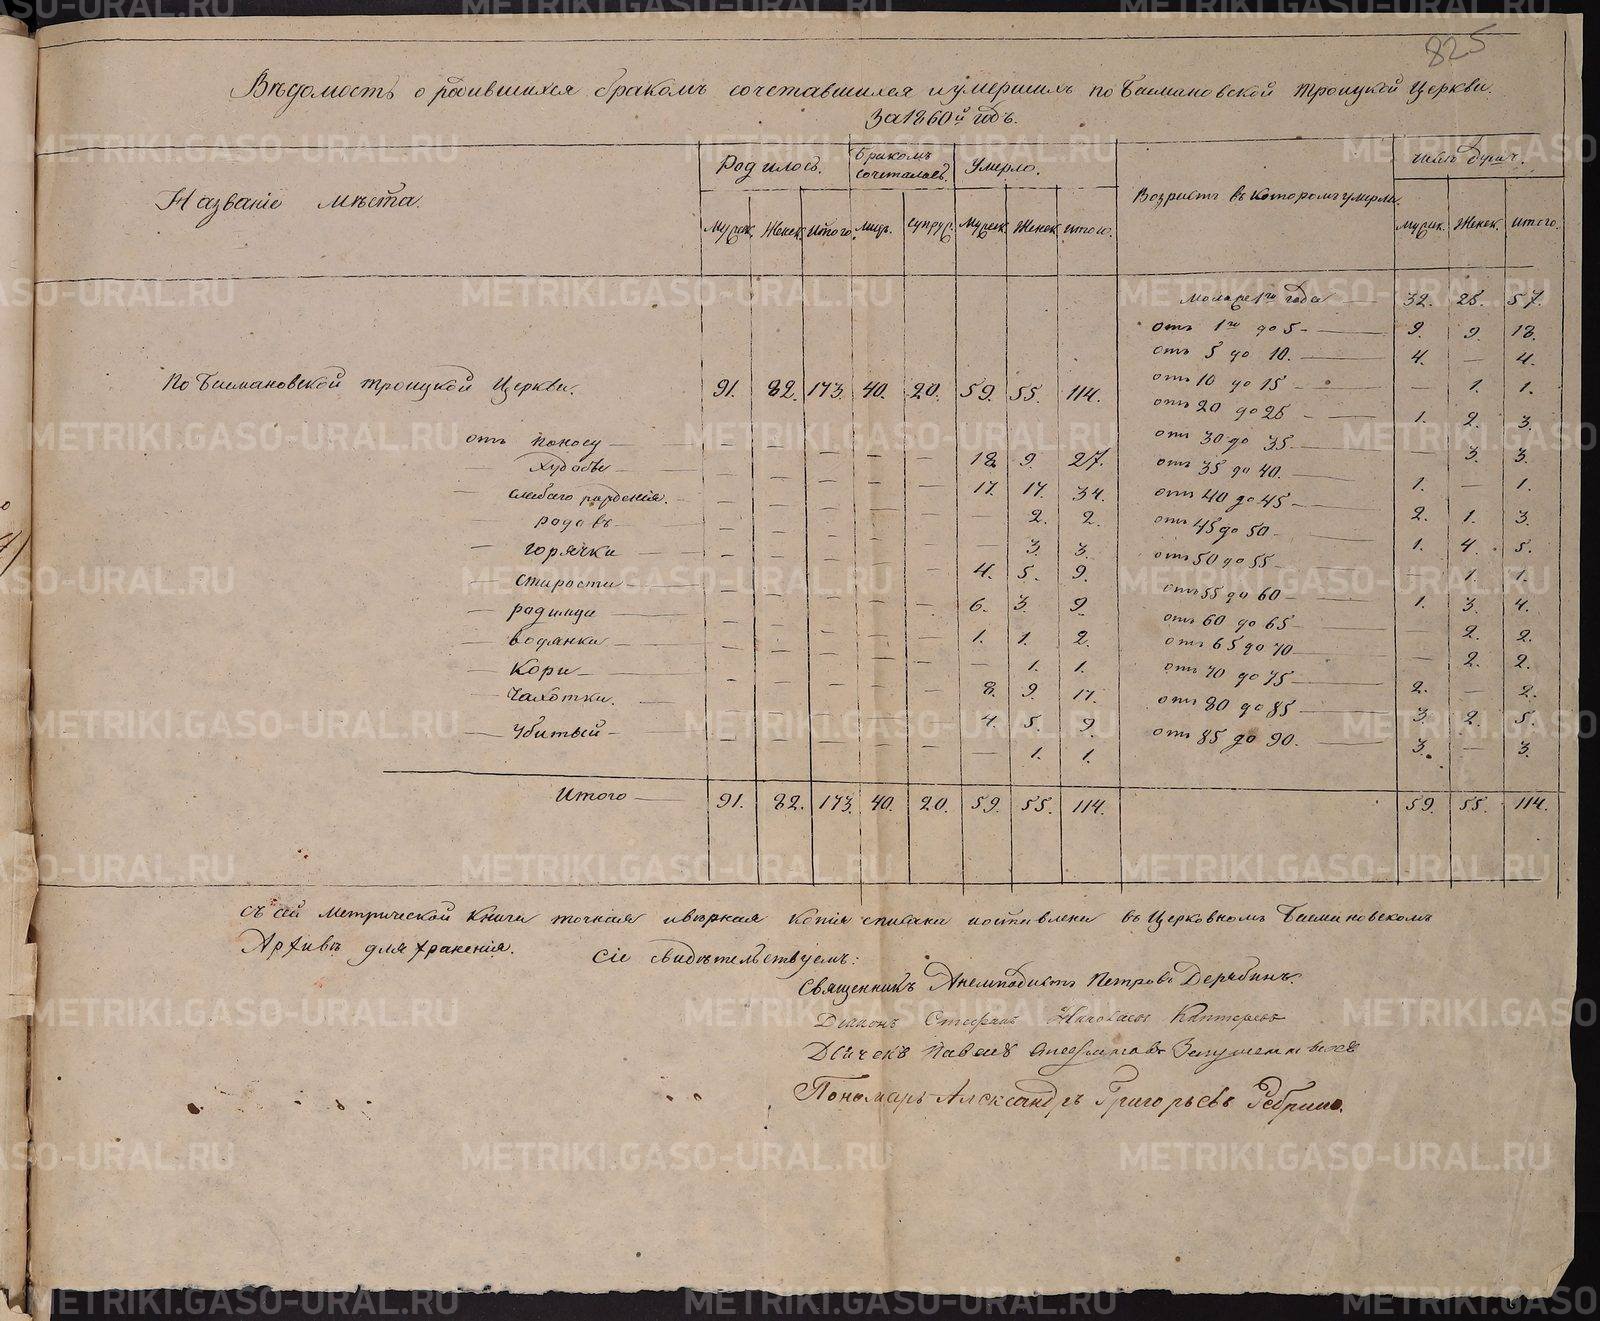 825
Вѣдомость о родившихся бракомъ сочетавшихся и умершихъ по Басмановской Троицкой Церкви.
За 1860й годъ.
Названіе мѣста.
Родилось. Бракомъ сочеталось. Умерло. Возрастъ въ которомъ умерли. число душъ.
Мужск. Женск. Итого. Лицъ. Супруж. Мужск. Женск. итого. Мужск. Женск. итого.
По Басмановской Троицкой Церкви. 91. 82. 173. 40. 20. 59. 55. 114.
отъ поносу — — — — — — 18. 9. 27.
худобы — — — — — — 17. 17. 34.
— слабаго рожденія. — — — — — — — 2. 2.
— родовъ — — — — — — — 3. 3.
— горячки — — — — — — 4. 5. 9.
— старости — — — — — — 6. 3. 9.
— родимца — — — — — — 1. 1. 2.
— водянки — — — — — — — 1. 1.
— Кори — — — — — — 8. 9. 17.
— Чахотки. — — — — — — 4. 5. 9.
— Убитый — — — — — — — 1. 1.
Итого — 91. 82. 173. 40. 20. 59. 55. 114.
моложе 1го года — 32. 25. 57.
отъ 1го до 5 — 9. 9. 18.
отъ 5 до 10. — 4. — 4.
отъ 10 до 15 — — 1. 1.
отъ 20 до 25 — 1. 2. 3.
отъ 30 до 35 — — 3. 3.
отъ 35 до 40. — 1. — 1.
отъ 40 до 45 — 2. 1. 3.
отъ 45 до 50 — 1. 4. 5.
отъ 50 до 55 — — 1. 1.
отъ 55 до 60 — 1. 3. 4.
отъ 60 до 65 — — 2. 2.
отъ 65 до 70 — — 2. 2.
отъ 70 до 75 — 2. — 2.
отъ 80 до 85 — 3. 2. 5.
отъ 85 до 90. — 3. — 3.
59. 55. 114.
Съ сей Метрической Книги точная и вѣрная Копія списана и оставлена въ Церковномъ Басмановскомъ
Архивѣ для храненія. Сіе свидѣтельствуемъ:
Священникъ Анемподистъ Петровъ Дерябинъ.
Діаконъ Стефанъ
Дьячекъ Павелъ
Пономарь Александръ Григорьевъ Ребринъ.
METRIKI.GASO-URAL.RU